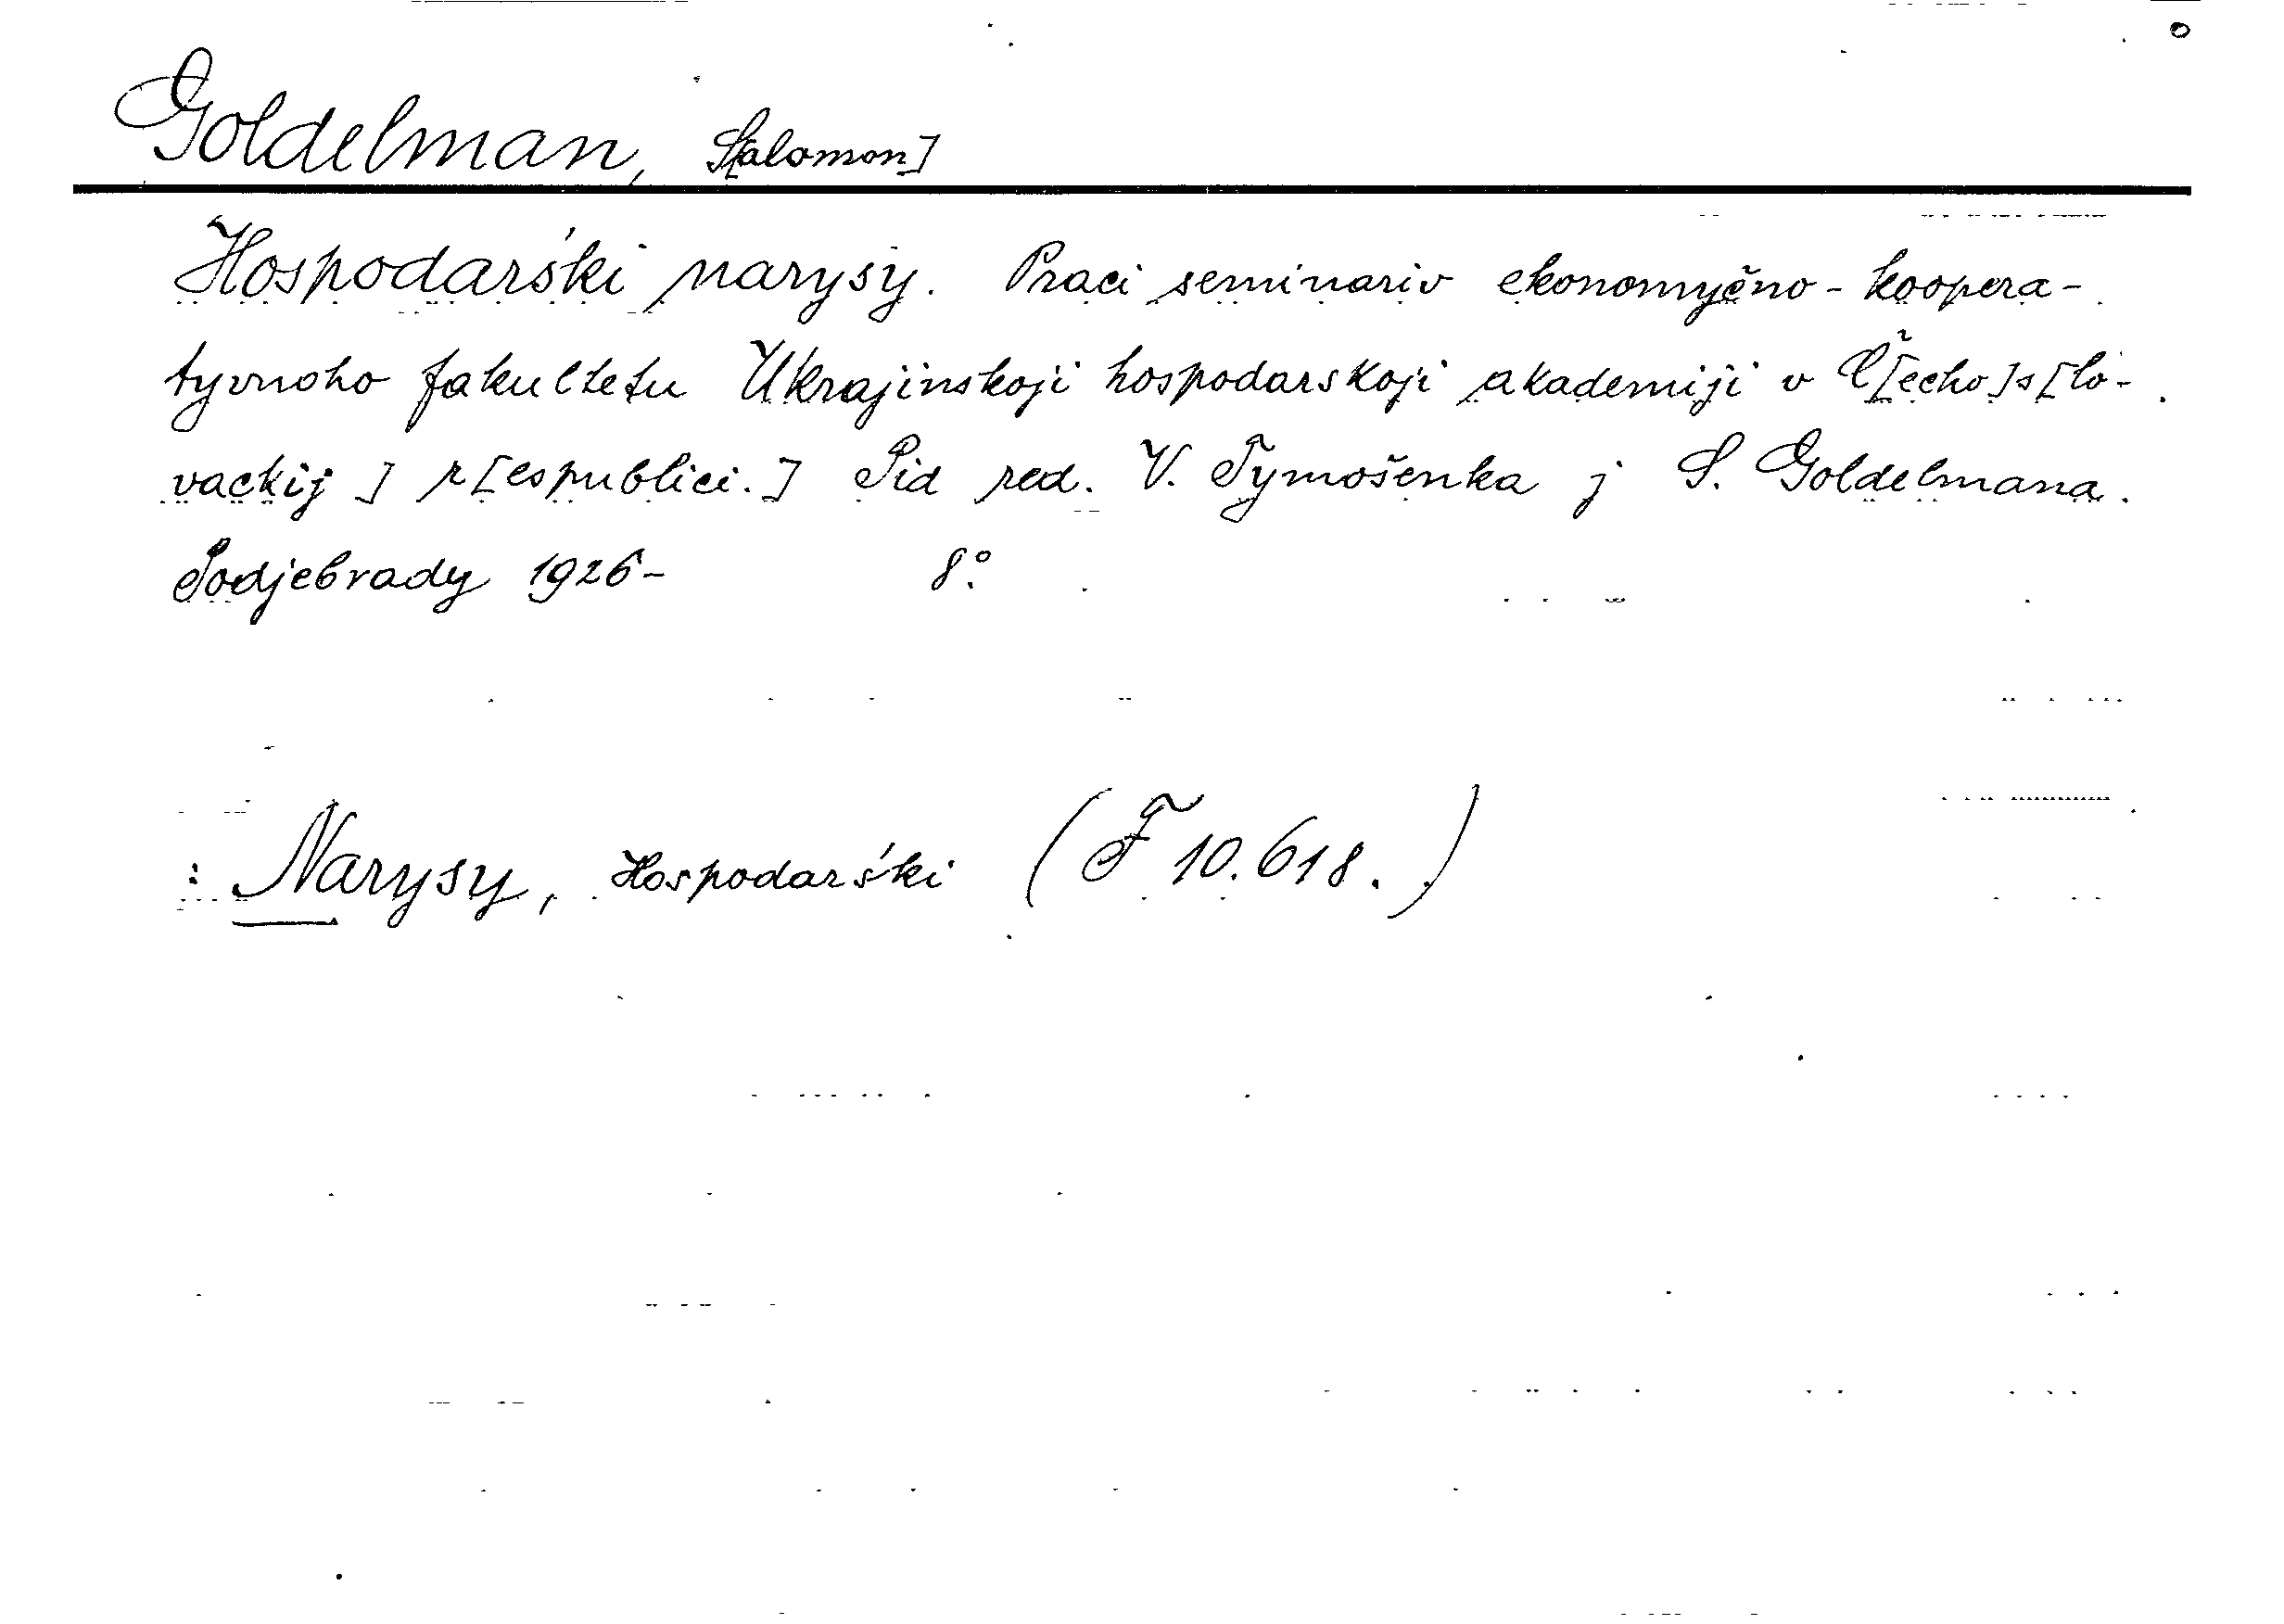 Goldelman, S[alomon]
Hospodarśki narysy. Praci seminariv ekonomyčno-koopera-
tyvnoho fakultetu Ukrajinskoji hospodarskoji akademiji v Č[echo]s[lo-
vackij] r[espublici.] Pid red. V. Tymošenka j S. Goldelmana.
Podjebrady 1926- 8°.
: Narysy, Hospodarśki (F 10.618.)